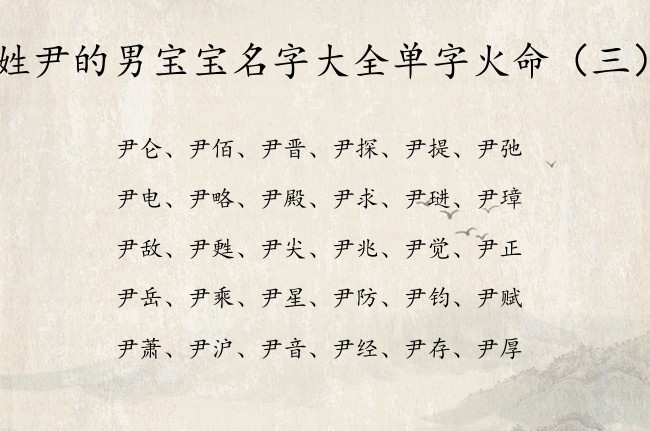 姓尹的男宝宝名字大全单字火命（三）
尹仑、尹佰、尹晋、尹探、尹提、尹弛
尹电、尹略、尹殿、尹求、尹琎、尹璋
尹敌、尹甦、尹尖、尹兆、尹觉、尹正
尹岳、尹乘、尹星、尹防、尹钧、尹赋
尹萧、尹沪、尹音、尹经、尹存、尹厚